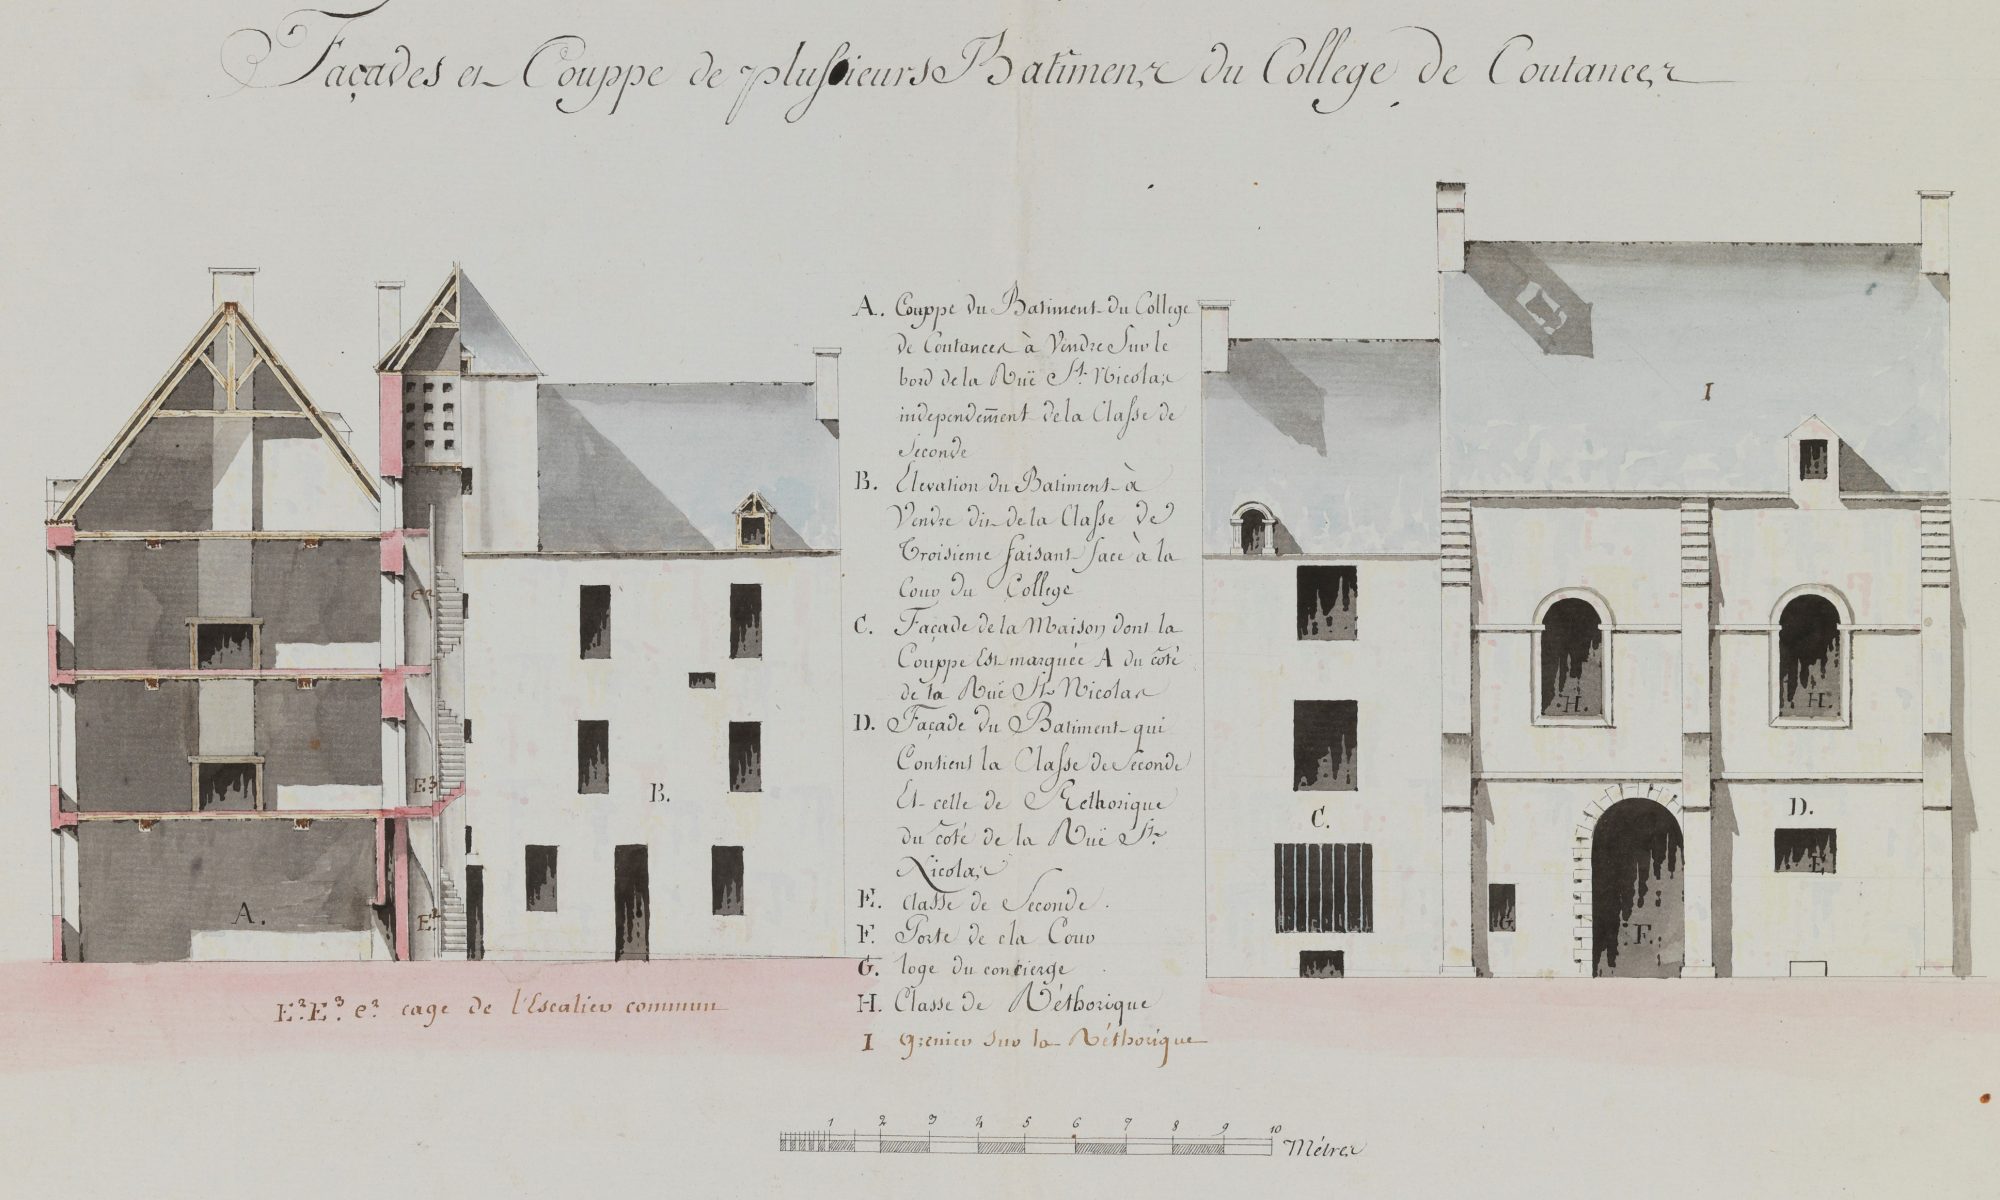 Façades et Couppe de plussieurs Batimens du College de Coutances
A. Couppe du Batiment du College
de Coutances à Vendre Sur le
bord de la Ruë St. Nicolas
independem̄ent de la Classe de
Seconde
B. Elevation du Batiment à
Vendre dit de la Classe de
Troisieme faisant face à la
Cour du College
C. Façade de la Maison dont la
Couppe Est marquée A du coté
de la Ruë St Nicolas
D. Façade du Batiment qui
Contient la Classe de Seconde
Et celle de Rethorique
du coté de la Ruë St.
Nicolas
E. Classe de Seconde.
F. Porte de cla Cour
G. loge du concierge
H. Classe de Réthorique
I Grenier sur la Réthorique
A.
e2
E3
E2
B.
C.
I
H.
H.
D.
E
G.
F.
E2. E3. e2. cage de l'Escalier commun
1 2 3 4 5 6 7 8 9 10 Métres